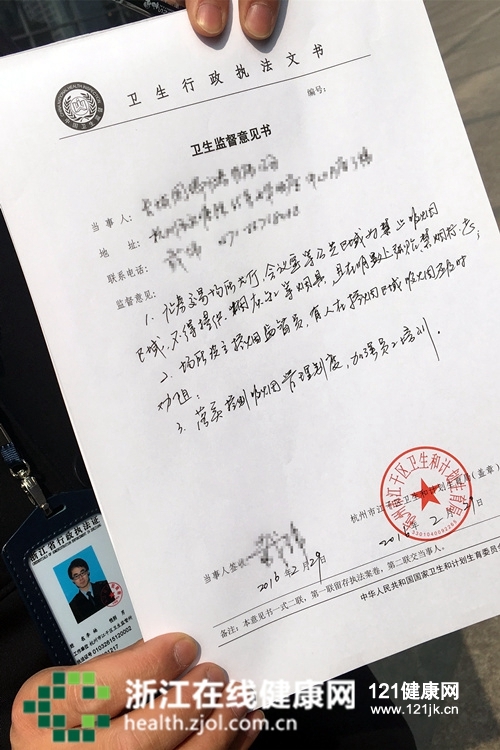 卫生行政执法文书
编号:
卫生监督意见书
当事人:
地址:
联系电话:
监督意见:
1. 证券交易场所大厅、会议室等公共区域为禁止吸烟
区域,不得提供烟灰缸等烟具,且在明显处张贴禁烟标志;
2. 场所设立控烟监督员,有人在控烟区域吸烟应及时
劝阻;
3. 落实控制吸烟管理制度,加强员工培训.
杭州市江干区卫生和计划生育局(盖章)
2016年2月29日
当事人签收:
2016年2月29日
中华人民共和国国家卫生和计划生育委员会
备注:本意见书一式二联,第一联留存执法案卷,第二联交当事人。
浙江省行政执法证
浙江在线健康网
health.zjol.com.cn
121健康网
www.121jk.cn